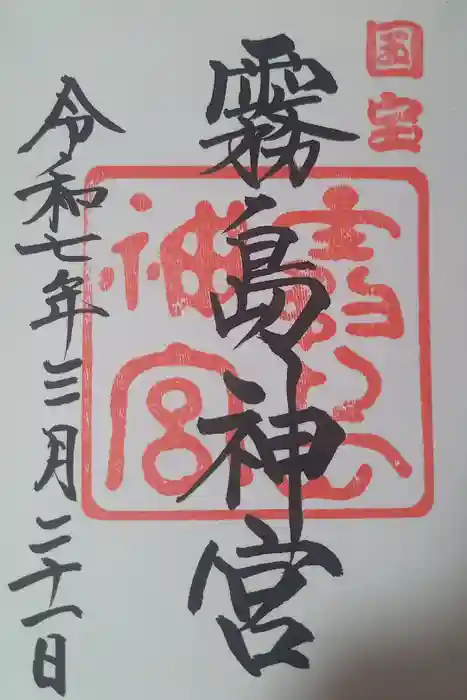 国宝
霧島神宮
霧島神宮
令和七年三月二十一日